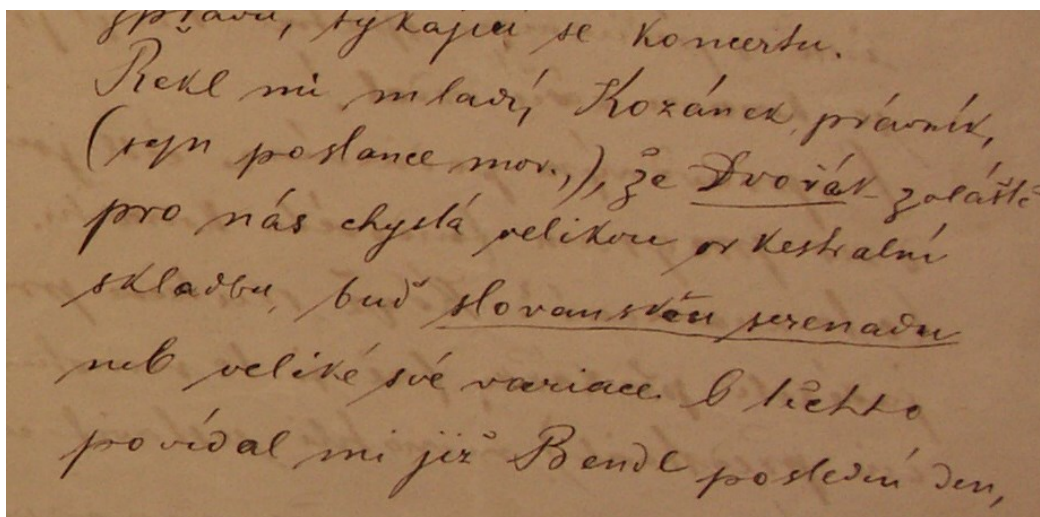 zprávu, týkající se koncertu.
Řekl mi mladý Kozánek, právník,
(syn poslance mor.,), že Dvořák zvláště
pro nás chystá velikou orkestralní
skladbu, buď slovanskou serenadu
neb veliké své variace. O těchto
povídal mi již Bendl poslední den,